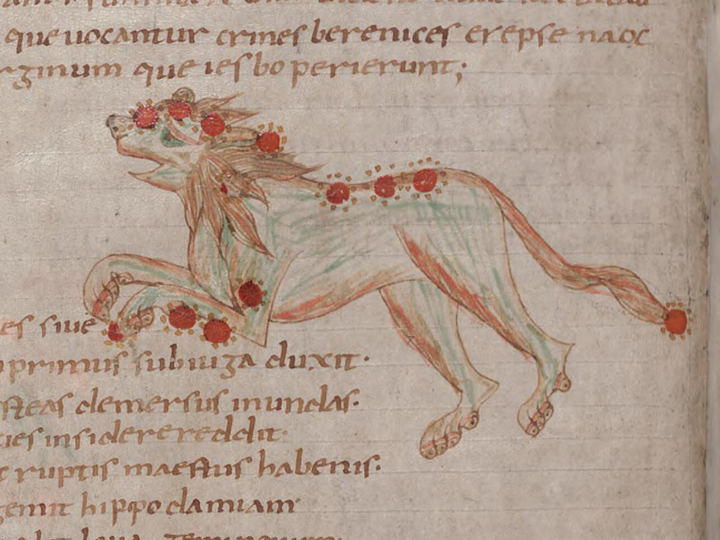 que uocantur crines berenices erepse naoc
rginum que ies bo perierunt;
es siue
primus sub iuga duxit·
steas demersus in undas·
ues insidere reddit·
t ruptis maestus habenis·
genit hippodamiam